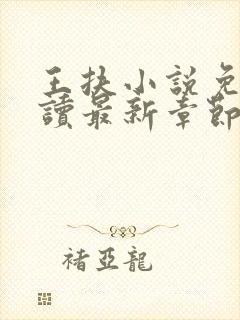 王抉小説免
讀最新章節
褚亞龍